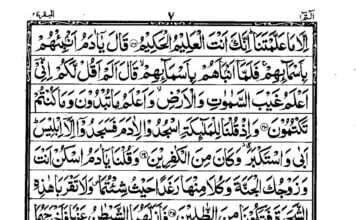 الٓمّٓ ١ ٧ البقرة ٢
اِلَّا مَا عَلَّمْتَنَا ؕ اِنَّكَ اَنْتَ الْعَلِیْمُ الْحَكِیْمُ قَالَ یٰۤاٰدَمُ اَنْۢبِئْهُمْ
بِاَسْمَآىِٕهِمْ ۚ فَلَمَّاۤ اَنْۢبَاَهُمْ بِاَسْمَآىِٕهِمْ ۙ قَالَ اَلَمْ اَقُلْ لَّكُمْ اِنِّیْۤ
اَعْلَمُ غَیْبَ السَّمٰوٰتِ وَالْاَرْضِ ۙ وَاَعْلَمُ مَا تُبْدُوْنَ وَمَا كُنْتُمْ
تَكْتُمُوْنَ وَاِذْ قُلْنَا لِلْمَلٰٓىِٕكَةِ اسْجُدُوْا لِاٰدَمَ فَسَجَدُوْۤا اِلَّاۤ اِبْلِیْسَ ؕ
اَبٰی وَاسْتَكْبَرَ ٘ۗ وَكَانَ مِنَ الْكٰفِرِیْنَ وَقُلْنَا یٰۤاٰدَمُ اسْكُنْ اَنْتَ
وَزَوْجُكَ الْجَنَّةَ وَكُلَا مِنْهَا رَغَدًا حَیْثُ شِئْتُمَا ۪ وَلَا تَقْرَبَا هٰذِهِ
الشَّجَرَةَ فَتَكُوْنَا مِنَ الظّٰلِمِیْنَ فَاَزَلَّهُمَا الشَّیْطٰنُ عَنْهَا فَاَخْرَجَهُمَا